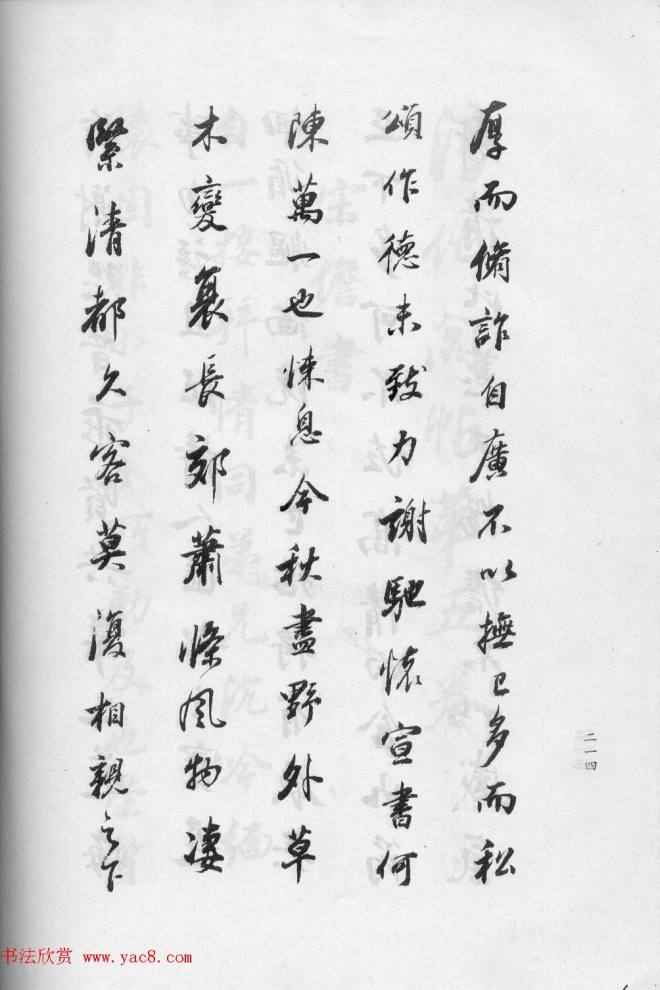 厚而脩詐自廣不以撫己多而私
頌作德未致力謝馳懷宣書何
陳萬一也悚息今秋盡野外草
木變襄長郊蕭條風物凄
緊清都久客莫復相親之下
二一四
书法欣赏 www.yac8.com